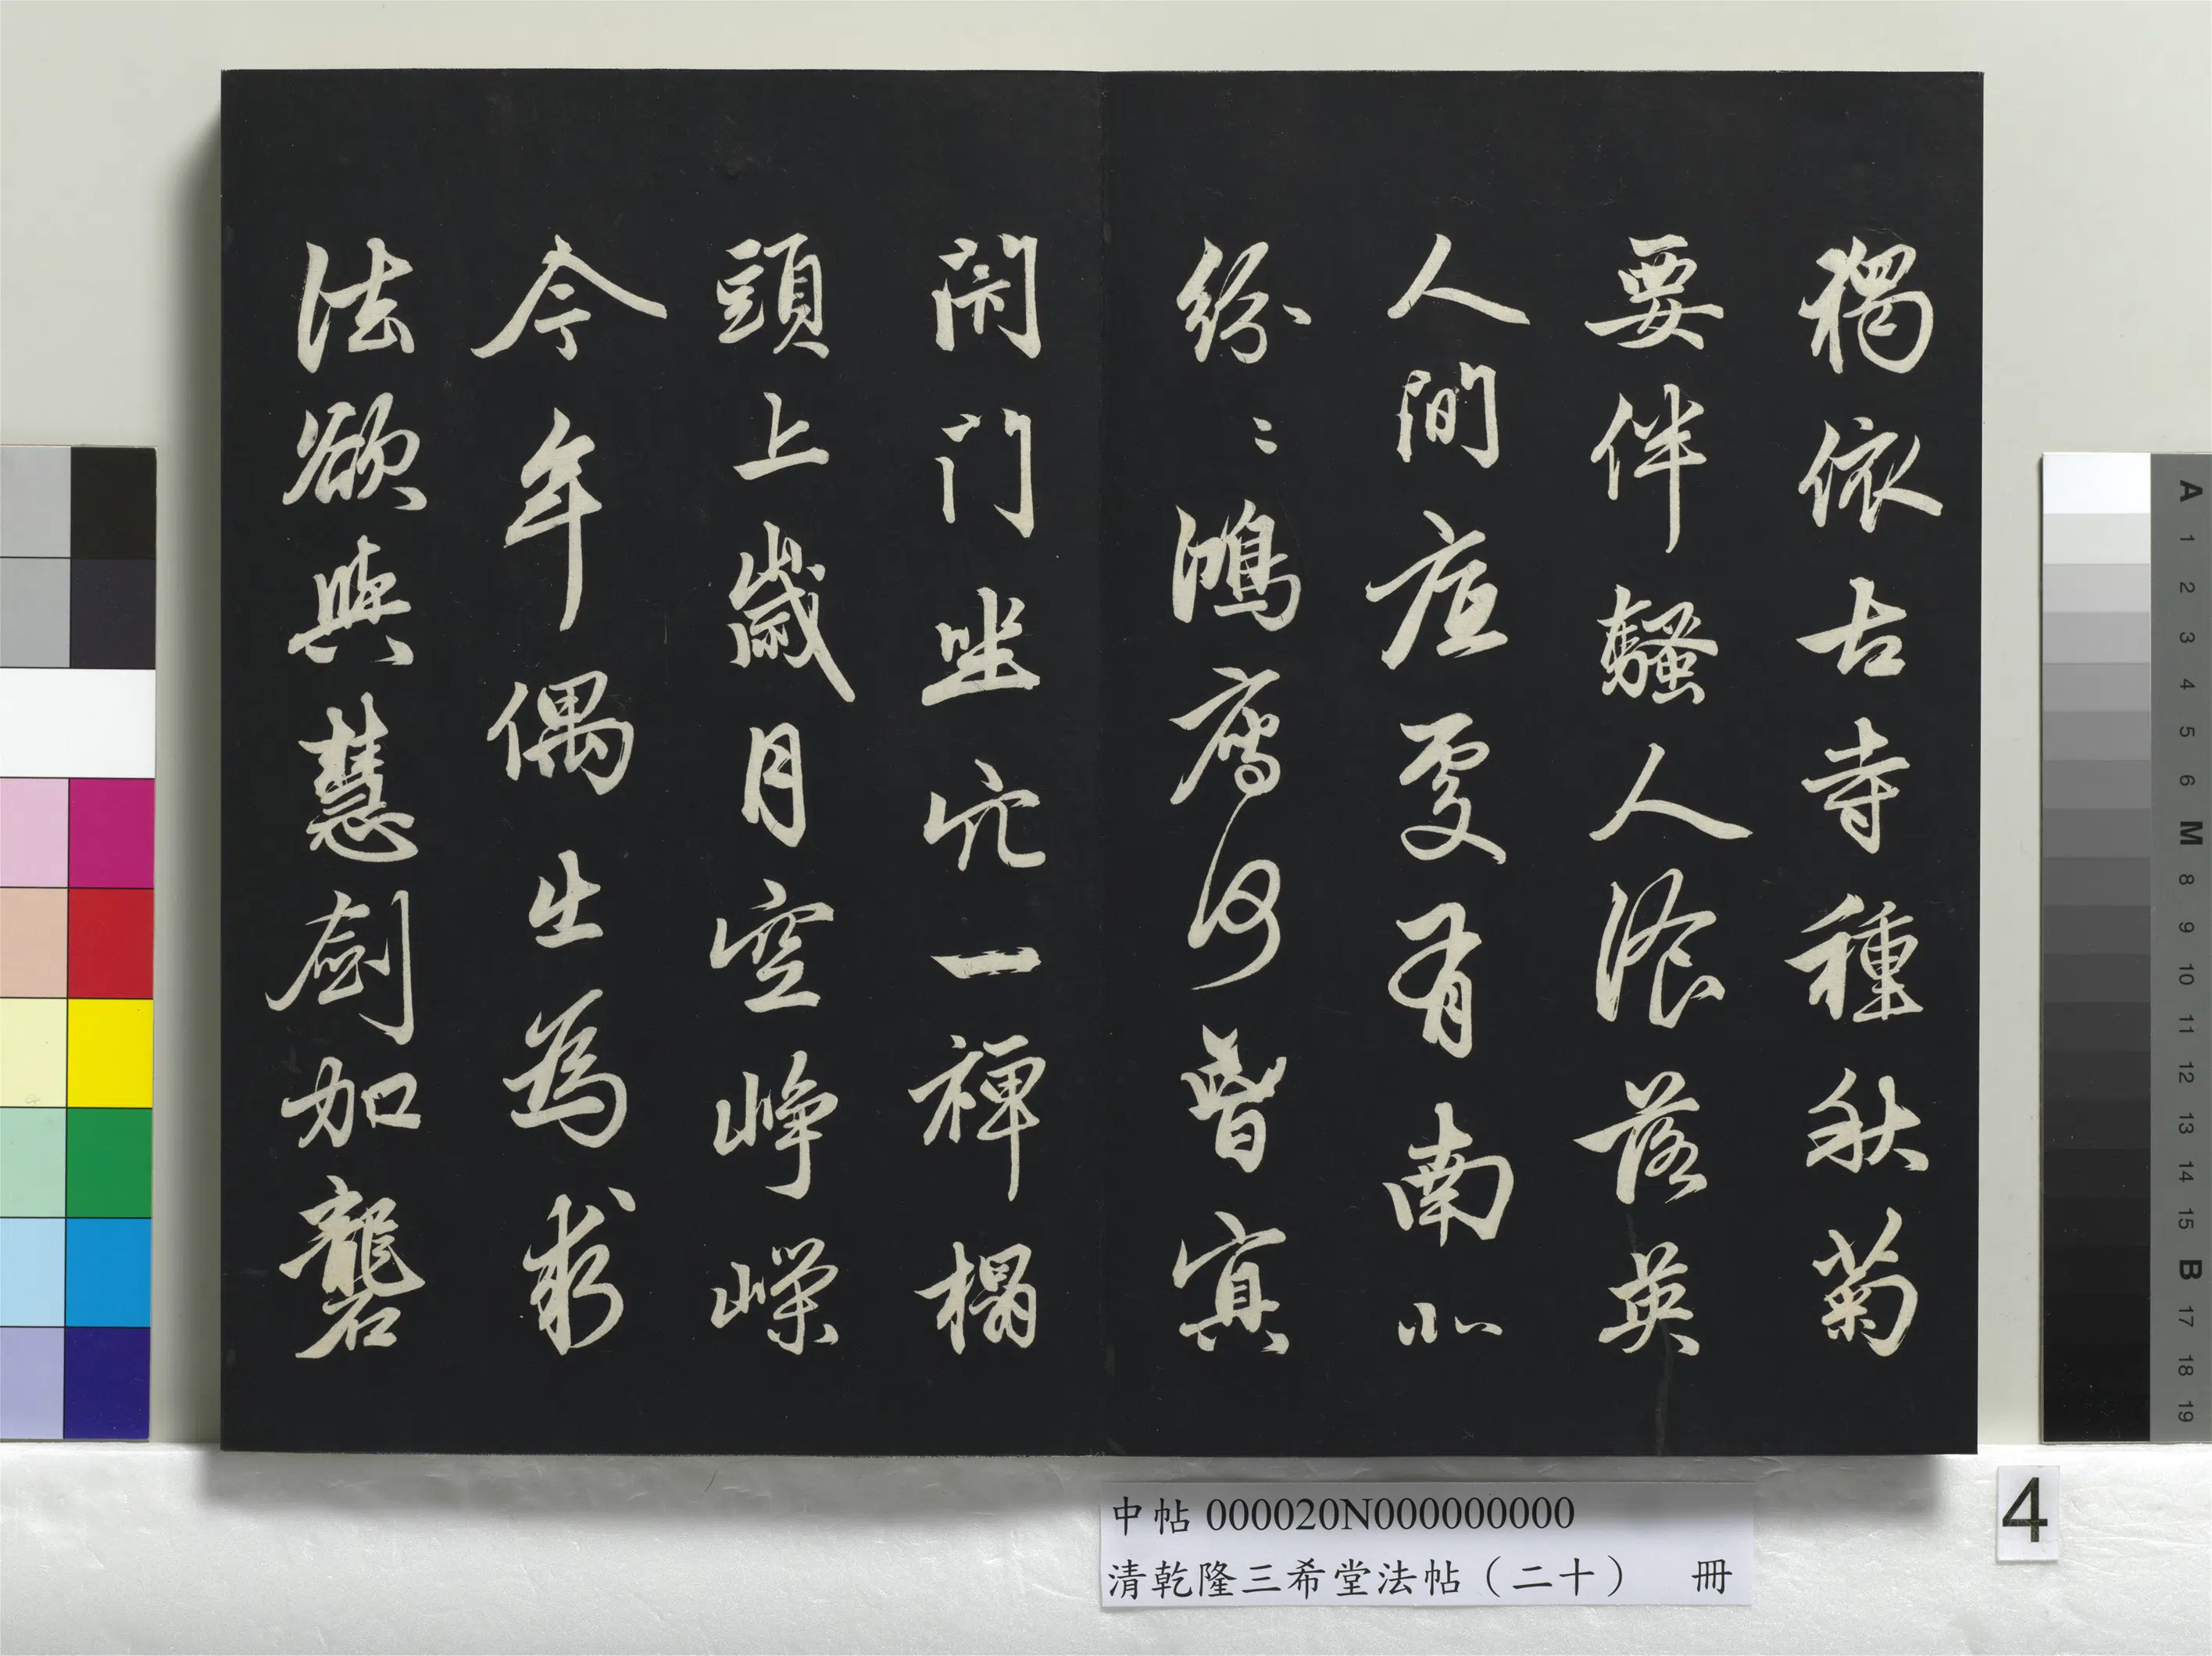 獨依古寺種秋菊
要伴騷人飡落英
人間底處有南北
紛〻鴻鴈何曾冥
閉門坐穴一禪榻
頭上歲月空崢嶸
今年偶出為求
法欲與慧劍加礱
中帖 000020N000000000
清乾隆三希堂法帖（二十） 冊
4
A 1 2 3 4 5 6 M 8 9 10 11 12 13 14 15 B 17 18 19